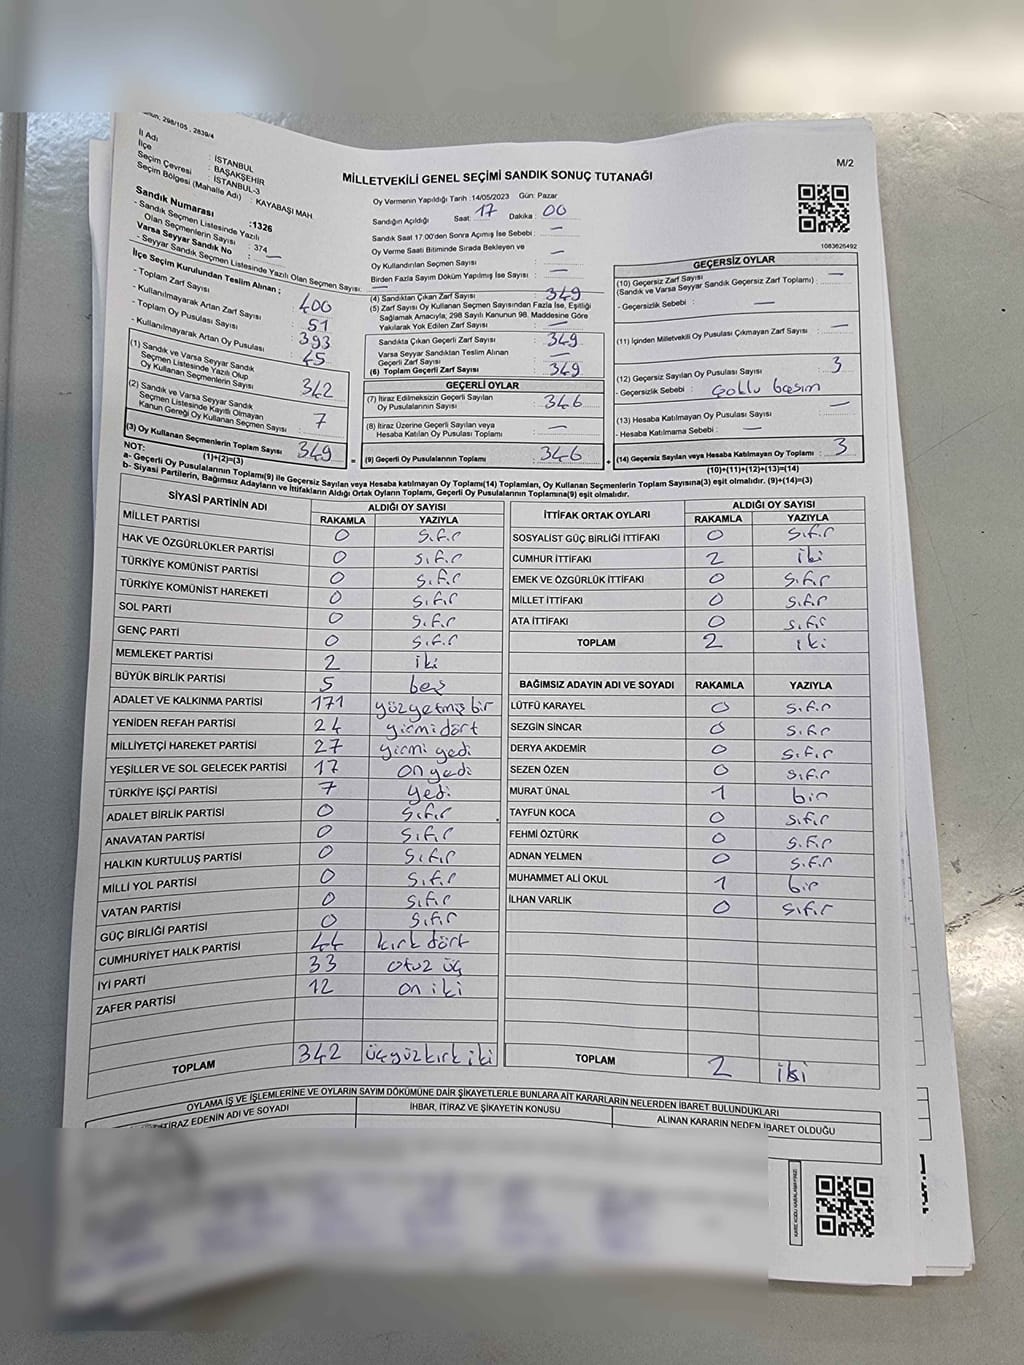 298/105 , 2839/4
M/2
İl Adı : İSTANBUL
İlçe : BAŞAKŞEHİR
Seçim Çevresi : İSTANBUL-3
Seçim Bölgesi (Mahalle Adı) : KAYABAŞI MAH
Sandık Numarası :1326
- Sandık Seçmen Listesinde Yazılı
Olan Seçmenlerin Sayısı : 374
Varsa Seyyar Sandık No : —
- Seyyar Sandık Seçmen Listesinde Yazılı Olan Seçmen Sayısı: —
İlçe Seçim Kurulundan Teslim Alınan ;
- Toplam Zarf Sayısı : 400
- Kullanılmayarak Artan Zarf Sayısı : 51
- Toplam Oy Pusulası Sayısı : 393
- Kullanılmayarak Artan Oy Pusulası : 45
(1) Sandık ve Varsa Seyyar Sandık
Seçmen Listesinde Yazılı Olup
Oy Kullanan Seçmenlerin Sayısı : 342
(2) Sandık ve Varsa Seyyar Sandık
Seçmen Listesinde Kayıtlı Olmayan
Kanun Gereği Oy Kullanan Seçmen Sayısı : 7
(3) Oy Kullanan Seçmenlerin Toplam Sayısı : 349
(1)+(2)=(3)
MİLLETVEKİLİ GENEL SEÇİMİ SANDIK SONUÇ TUTANAĞI
Oy Vermenin Yapıldığı Tarih :14/05/2023 Gün: Pazar
Sandığın Açıldığı Saat: 17 Dakika : 00
Sandık Saat 17.00'den Sonra Açılmış İse Sebebi : —
Oy Verme Saati Bitiminde Sırada Bekleyen ve
Oy Kullandırılan Seçmen Sayısı : —
Birden Fazla Sayım Döküm Yapılmış İse Sayısı : —
(4) Sandıktan Çıkan Zarf Sayısı : 349
(5) Zarf Sayısı Oy Kullanan Seçmen Sayısından Fazla İse, Eşitliği
Sağlamak Amacıyla; 298 Sayılı Kanunun 98. Maddesine Göre
Yakılarak Yok Edilen Zarf Sayısı : —
Sandıkta Çıkan Geçerli Zarf Sayısı : 349
Varsa Seyyar Sandıktan Teslim Alınan
Geçerli Zarf Sayısı : —
(6) Toplam Geçerli Zarf Sayısı : 349
GEÇERLİ OYLAR
(7) İtiraz Edilmeksizin Geçerli Sayılan
Oy Pusulalarının Sayısı : 346
(8) İtiraz Üzerine Geçerli Sayılan veya
Hesaba Katılan Oy Pusulası Toplamı : —
= (9) Geçerli Oy Pusulalarının Toplamı : 346 +
1083626492
GEÇERSİZ OYLAR
(10) Geçersiz Zarf Sayısı : —
(Sandık ve Varsa Seyyar Sandık Geçersiz Zarf Toplamı)
- Geçersizlik Sebebi : —
(11) İçinden Milletvekili Oy Pusulası Çıkmayan Zarf Sayısı : —
(12) Geçersiz Sayılan Oy Pusulası Sayısı : 3
- Geçersizlik Sebebi : Çoklu basım
(13) Hesaba Katılmayan Oy Pusulası Sayısı : —
- Hesaba Katılmama Sebebi : —
(14) Geçersiz Sayılan veya Hesaba Katılmayan Oy Toplamı : 3
(10)+(11)+(12)+(13)=(14)
NOT:
a- Geçerli Oy Pusulalarının Toplamı(9) ile Geçersiz Sayılan veya Hesaba Katılmayan Oy Toplamı(14) Toplamları, Oy Kullanan Seçmenlerin Toplam Sayısına(3) eşit olmalıdır. (9)+(14)=(3)
b- Siyasi Partilerin, Bağımsız Adayların ve İttifakların Aldığı Ortak Oyların Toplamı, Geçerli Oy Pusulalarının Toplamına(9) eşit olmalıdır.
SİYASİ PARTİNİN ADI ALDIĞI OY SAYISI
RAKAMLA YAZIYLA
MİLLET PARTİSİ 0 Sıfır
HAK VE ÖZGÜRLÜKLER PARTİSİ 0 Sıfır
TÜRKİYE KOMÜNİST PARTİSİ 0 Sıfır
TÜRKİYE KOMÜNİST HAREKETİ 0 Sıfır
SOL PARTİ 0 Sıfır
GENÇ PARTİ 0 Sıfır
MEMLEKET PARTİSİ 2 iki
BÜYÜK BİRLİK PARTİSİ 5 beş
ADALET VE KALKINMA PARTİSİ 171 yüzyetmiş bir
YENİDEN REFAH PARTİSİ 24 yirmi dört
MİLLİYETÇİ HAREKET PARTİSİ 27 yirmi yedi
YEŞİLLER VE SOL GELECEK PARTİSİ 17 on yedi
TÜRKİYE İŞÇİ PARTİSİ 7 yedi
ADALET BİRLİK PARTİSİ 0 Sıfır
ANAVATAN PARTİSİ 0 Sıfır
HALKIN KURTULUŞ PARTİSİ 0 Sıfır
MİLLİ YOL PARTİSİ 0 Sıfır
VATAN PARTİSİ 0 Sıfır
GÜÇ BİRLİĞİ PARTİSİ 0 Sıfır
CUMHURİYET HALK PARTİSİ 44 kırk dört
İYİ PARTİ 33 otuz üç
ZAFER PARTİSİ 12 on iki
TOPLAM 342 üçyüzkırk iki
İTTİFAK ORTAK OYLARI ALDIĞI OY SAYISI
RAKAMLA YAZIYLA
SOSYALİST GÜÇ BİRLİĞİ İTTİFAKI 0 Sıfır
CUMHUR İTTİFAKI 2 iki
EMEK VE ÖZGÜRLÜK İTTİFAKI 0 Sıfır
MİLLET İTTİFAKI 0 Sıfır
ATA İTTİFAKI 0 Sıfır
TOPLAM 2 iki
BAĞIMSIZ ADAYIN ADI VE SOYADI RAKAMLA YAZIYLA
LÜTFÜ KARAYEL 0 Sıfır
SEZGİN SİNCAR 0 Sıfır
DERYA AKDEMİR 0 Sıfır
SEZEN ÖZEN 0 Sıfır
MURAT ÜNAL 1 bir
TAYFUN KOCA 0 Sıfır
FEHMİ ÖZTÜRK 0 Sıfır
ADNAN YELMEN 0 Sıfır
MUHAMMET ALİ OKUL 1 bir
İLHAN VARLIK 0 Sıfır
TOPLAM 2 iki
OYLAMA İŞ VE İŞLEMLERİNE VE OYLARIN SAYIM DÖKÜMÜNE DAİR ŞİKAYETLERLE BUNLARA AİT KARARLARIN NELERDEN İBARET BULUNDUKLARI
İTİRAZ EDENİN ADI VE SOYADI İHBAR, İTİRAZ VE ŞİKAYETİN KONUSU ALINAN KARARIN NEDEN İBARET OLDUĞU